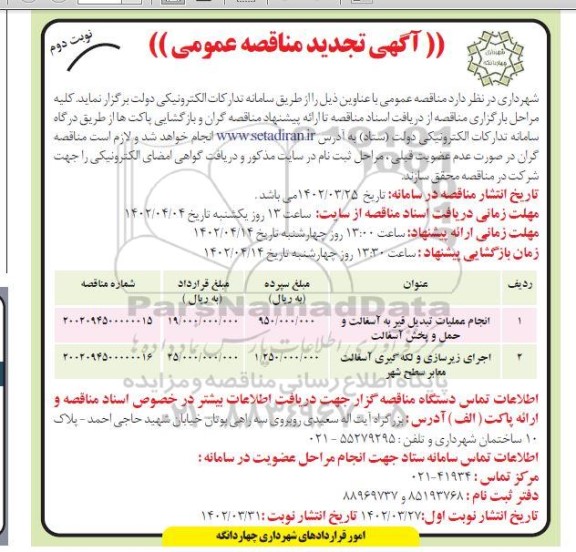 (( آگهی تجدید مناقصه عمومی ))
نوبت دوم
شهرداری چهاردانگه
شهرداری در نظر دارد مناقصه عمومی با عناوین ذیل را از طریق سامانه تدارکات الکترونیکی دولت برگزار نماید. کلیه
مراحل برگزاری مناقصه از دریافت اسناد مناقصه تا ارائه پیشنهاد مناقصه گران و بازگشایی پاکت ها از طریق درگاه
سامانه تدارکات الکترونیکی دولت (ستاد) به آدرس www.setadiran.ir انجام خواهد شد و لازم است مناقصه
گران در صورت عدم عضویت قبلی ، مراحل ثبت نام در سایت مذکور و دریافت گواهی امضای الکترونیکی را جهت
شرکت در مناقصه محقق سازند.
تاریخ انتشار مناقصه در سامانه: تاریخ ۱۴۰۲/۰۳/۲۵ می باشد.
مهلت زمانی دریافت اسناد مناقصه از سایت: ساعت ۱۳ روز یکشنبه تاریخ ۱۴۰۲/۰۴/۰۴
مهلت زمانی ارائه پیشنهاد: ساعت ۱۳:۰۰ روز چهارشنبه تاریخ ۱۴۰۲/۰۴/۱۴
زمان بازگشایی پیشنهاد : ساعت ۱۳:۳۰ روز چهارشنبه تاریخ ۱۴۰۲/۰۴/۱۴
ردیف عنوان مبلغ سپرده (به ریال) مبلغ قرارداد (به ریال ) شماره مناقصه
۱ انجام عملیات تبدیل قیر به آسفالت و حمل و پخش آسفالت ۹۵۰/۰۰۰/۰۰۰ ۱۹/۰۰۰/۰۰۰/۰۰۰ ۲۰۰۲۰۹۴۵۰۰۰۰۰۰۱۵
۲ اجرای زیرسازی و لکه گیری آسفالت معابر سطح شهر ۱/۲۵۰/۰۰۰/۰۰۰ ۲۵/۰۰۰/۰۰۰/۰۰۰ ۲۰۰۲۰۹۴۵۰۰۰۰۰۰۱۶
ParsNamadData
پایگاه اطلاع رسانی مناقصه و مزایده
اطلاعات تماس دستگاه مناقصه گزار جهت دریافت اطلاعات بیشتر در خصوص اسناد مناقصه و
ارائه پاکت ( الف ) آدرس : بزرگراه آیت اله سعیدی روبروی سه راهی بوتان خیابان شهید حاجی احمد - پلاک
۱۰ ساختمان شهرداری و تلفن : ۵۵۲۷۹۲۹۵ - ۰۲۱
اطلاعات تماس سامانه ستاد جهت انجام مراحل عضویت در سامانه :
مرکز تماس : ۴۱۹۳۴-۰۲۱
دفتر ثبت نام : ۸۵۱۹۳۷۶۸ و ۸۸۹۶۹۷۳۷
تاریخ انتشار نوبت اول: ۱۴۰۲/۰۳/۲۷ تاریخ انتشار نوبت : ۱۴۰۲/۰۳/۳۱
امور قراردادهای شهرداری چهاردانگه